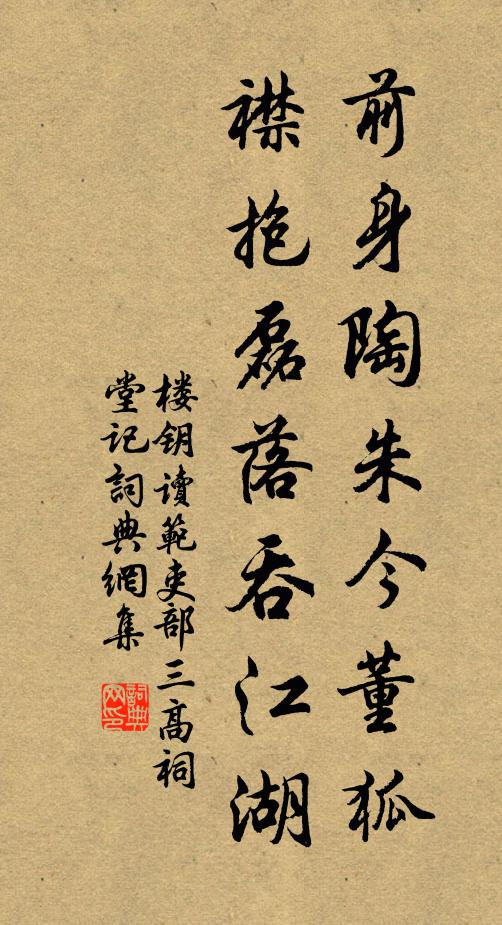 前身陶朱今董狐
襟抱磊落吞江湖
楼钥读範吏部三高祠
堂记詞典網集
詞典网印